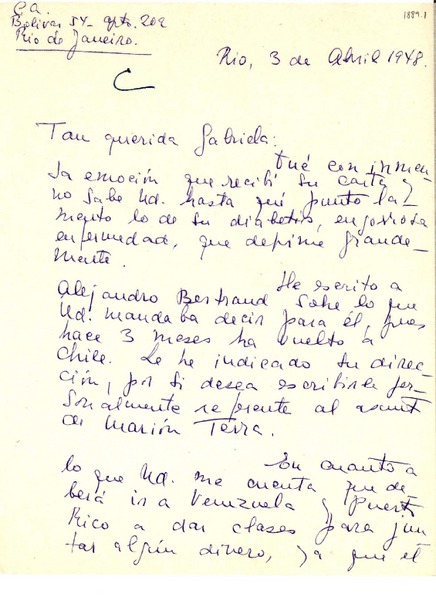 C/A.
Bolivar 54 - apto. 202
Rio de Janeiro.
1889.1
Rio, 3 de Abril 1948.
C
Tan querida Gabriela:
Fué con inmen
sa emoción que recibí su carta y
no sabe Ud. hasta qué punto la
mento lo de su diabetis, engorrosa
enfermedad, que deprime grande-
mente.
He escrito a
Alejandro Bertrand sobre lo que
Ud. mandaba decir para él, pues
hace 3 meses ha vuelto a
Chile. Le he indicado su direc-
ción, por si desea escribirle per-
sonalmente referente al asunto
de Marión Terra.
En cuanto a
lo que Ud. me cuenta que de
berá ir a Venezuela y Puerto
Rico a dar clases para jun
tar algún dinero, ya que el